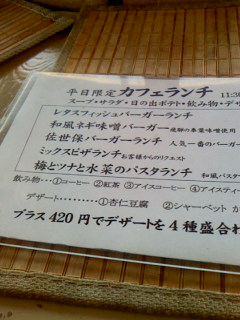 平日限定 カフェランチ 11:30
スープ・サラダ・日の出ポテト・飲み物・デザ
レタスフィッシュバーガーランチ
和風ネギ味噌バーガー 飛騨の朴葉味噌使用
佐世保バーガーランチ 人気一番のバーガー
ミックスピザランチ お客様からのリクエスト
梅とツナと水菜のパスタランチ 和風パスタ
飲み物・・・①コーヒー ②紅茶 ③アイスコーヒー ④アイスティー
デザート・・・・・・・・①杏仁豆腐 ②シャーベット か
プラス420円でデザートを4種盛合わ